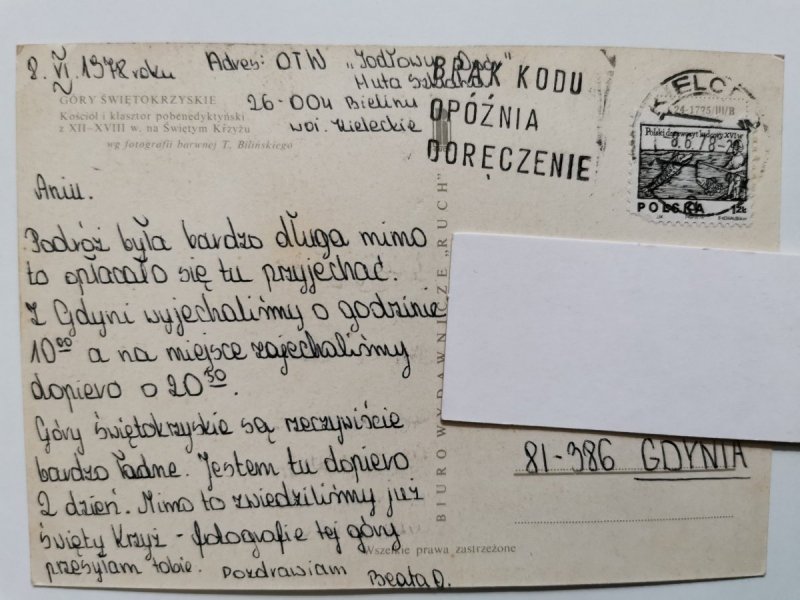 8. VI. 1978 roku
Adres: OTW "Jodłowy Dwór"
Huta Szklana
26-004 Bieliny
woj. Kieleckie
GÓRY ŚWIĘTOKRZYSKIE
Kościół i klasztor pobenedyktyński
z XII-XVIII w. na Świętym Krzyżu
wg fotografii barwnej T. Bilińskiego
BRAK KODU
OPÓŹNIA
DORĘCZENIE
KIELCE
24-1775/III/B
Polski drzeworyt ludowy XVI w.
8.6.78-2
POLSKA 1 ZŁ
Aniu.
Podróż była bardzo długa mimo
to opłacało się tu przyjechać.
Z Gdyni wyjechaliśmy o godzinie
10⁰⁰ a na miejsce zajechaliśmy
dopiero o 20³⁰.
Góry świętokrzyskie są rzeczywiście
bardzo ładne. Jestem tu dopiero
2 dzień. Mimo to zwiedziliśmy już
święty Krzyż - fotografie tej góry
przesyłam tobie. Pozdrawiam Beata D.
BIURO WYDAWNICZE „RUCH"
81-386 GDYNIA
Wszelkie prawa zastrzeżone